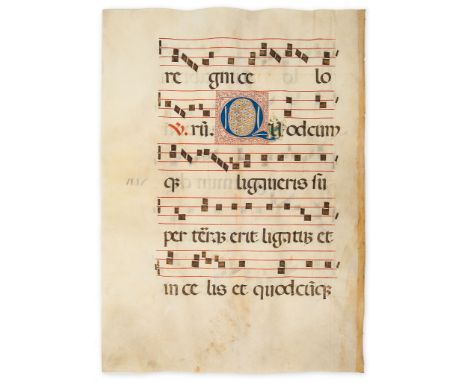 re gni ce lo
℣. rū. Quodcum
qꝫ ligaueris su
per terrā erit ligatū et
in ce lis et quodcūqꝫ